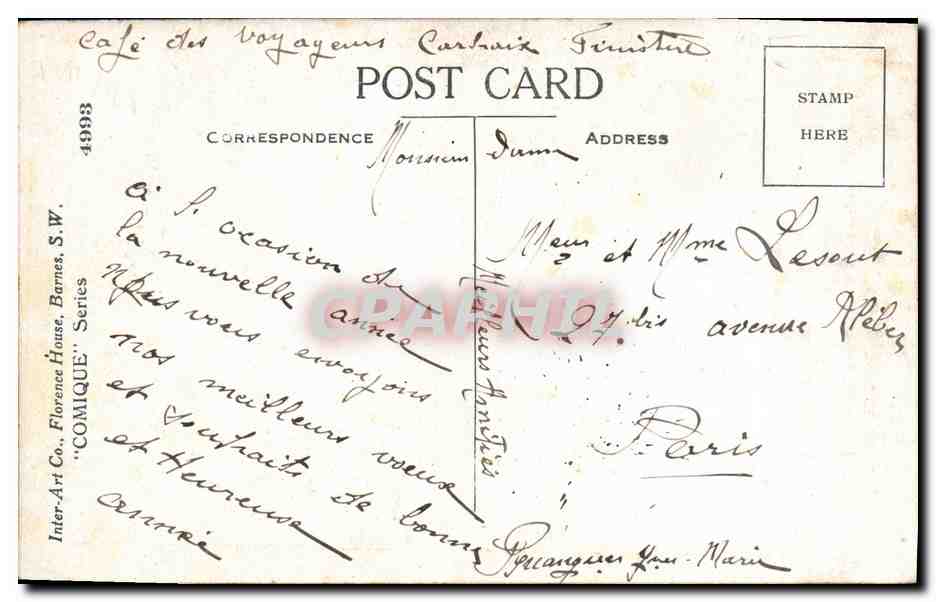 Café des Voyageurs Carhaix Finistère
POST CARD
STAMP
HERE
CORRESPONDENCE
ADDRESS
Monsieur
à l'ocasion du
la nouvelle année
Nous vous envoyons
nos meilleurs voeux
et souhaits de bonne
et Heureuse
année
Meilleurs Amitiés
Meur et Mme Lesout
27 bis avenue Kléber
Paris
Yves-Marie
4993
Inter-Art Co., Florence House, Barnes, S.W.
"COMIQUE" Series
CPAPHIL